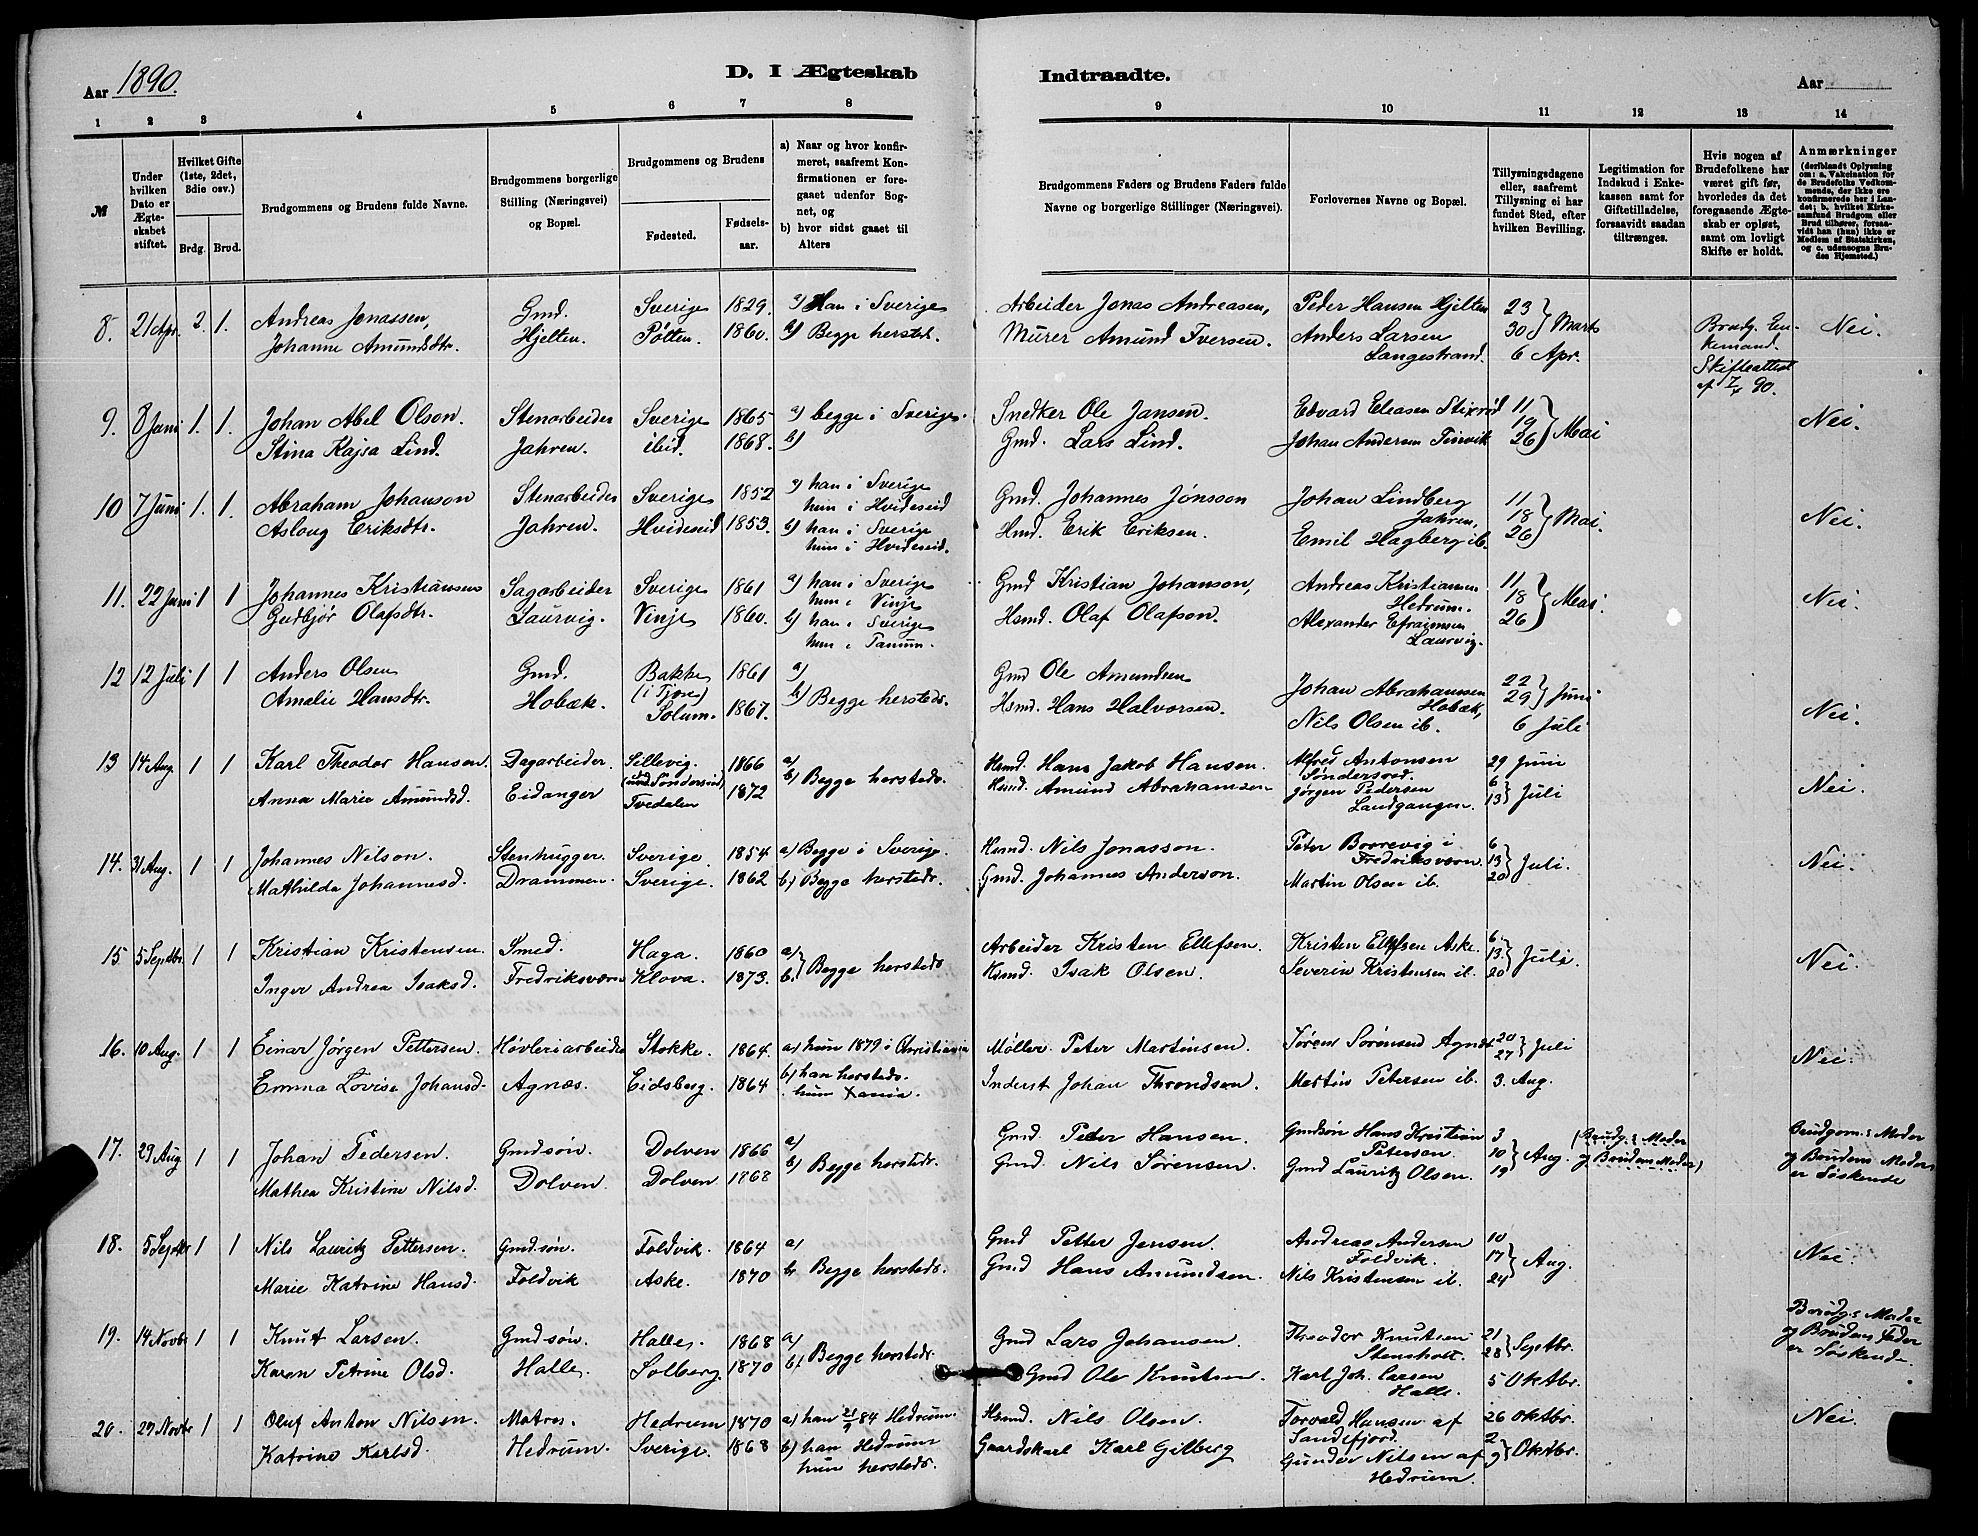 Aar 1890.
D. I Ægteskab
Indtraadte.
Aar
1 2 3 4 5 6 7 8 9 10 11 12 13 14
№
Under hvilken Dato er Ægteskabet stiftet.
Hvilket Gifte (1ste, 2det, 3die osv.)
Brdg. Brud.
Brudgommens og Brudens fulde Navne.
Brudgommens borgerlige Stilling (Næringsvei) og Bopæl.
Brudgommens og Brudens
Fødested.
Fødselsaar.
a) Naar og hvor konfirmeret, saafremt Konfirmationen er foregaaet udenfor Sognet, og
b) hvor sidst gaaet til Alters
Brudgommens Faders og Brudens Faders fulde Navne og borgerlige Stillinger (Næringsvei).
Forlovernes Navne og Bopæl.
Tillysningsdagene eller, saafremt Tillysning ei har fundet Sted, efter hvilken Bevilling.
Legitimation for Indskud i Enkekassen samt for Giftetilladelse, forsaavidt saadan tiltrænges.
Hvis nogen af Brudefolkene har været gift før, hvorledes da det foregaaende Ægteskab er opløst, samt om lovligt Skifte er holdt.
Anmærkninger (deriblandt Oplysning om: a. Vakcination for de Brudefolks Vedkommende, der ikke ere konfirmerede her i Landet; b. hvilket Kirkesamfund Brudgom eller Brud tilhører, forsaavidt han (hun) ikke er Medlem af Statskirken, og c. udensogns Brudes Hjemsted.)
8. 21 Apr. 2. 1. Andreas Jonassen, Gmd. Sverige 1829. a) Han i Sverige Arbeider Jonas Andreasen, Peder Hansen Hjelten 23
Johanne Amundsdtr. Hjelten. Pøtten. 1860. b) Begge herstds. Murer Amund Iversen. Anders Larsen 30 } Marts Brudg. Enkemand. Nei.
Langestrand. 6 Apr. Skifteattest
af 90.
9. 8 Juni 1. 1. Johan Abel Olson. Stenarbeider Sverige 1865 a) begge i Sverige. Snedker Ole Jansen. Edvard Eleasen Stixrød 11
Stina Kajsa Lind. Jahren. ibid. 1868. b) Gmd. Lars Lind. Johan Andersen 19 26 } Mai Nei.
10 7 Juni 1. 1. Abraham Johanson Stenarbeider Sverige 1852 a) han i Sverige hun i Hvideseid Gmd. Johannes Jonsson Johan Lindberg Jahren, 11
Aslaug Eriksdtr. Jahren. Hvideseid 1853. b) han i Sverige hun i Hvideseid. Hmd. Erik Eriksen. Emil Hagberg ib. 18 26 } Mai. Nei.
11. 22 Juni 1 1 Johannes Kristiansen Sagarbeider Sverige 1861 a) han i Sverige hun i Vinje Gmd Kristian Johanson, Andreas Kristiansen Hedrum. 11
Gudbjør Olafsdtr. Laurvig. Vinje 1860. b) han i Sverige hun i Tanum. Hsmd. Olaf Olafson. Alexander Efraimsen Laurvig. 18 26 } Mai. Nei.
12 12 Juli 1 1 Anders Olsen Gmd. Bakke (i Tjøn) 1861 a) Gmd Ole Amundsen Johan Abrahamsen Hobæk, 22 29 } Juni
Amelie Hansdtr. Hobæk. Solum. 1867. b) Begge herstds. Hsmd. Hans Halvorsen. Nils Olsen ib. 6 Juli Nei.
13 14 Aug. 1 1 Karl Theodor Hansen. Dagarbeider. Sillevig. 1866 a) Hsmd. Hans Jakob Hansen. Alfred Antonsen 29 Juni
Anna Marie Amundsd. Eidanger Tvedalen 1872 b) Begge herstds. Hsmd. Amund Abrahamsen Jørgen Pedersen Landgangen. 6 13 } Juli Nei.
14. 31 Aug. 1 1 Johannes Nilson. Stenhugger. Sverige. 1854. a) Begge i Sverige. Hsmd. Nils Jonasson. Peter Borrevig i Fredriksværn 6
Mathilda Johannesd. Drammen. Sverige. 1862 b) Begge herstds. Gmd. Johannes Anderson. Martin Olsen ib. 13 20 } Juli. Nei.
15 5 Septbr. 1 1 Kristian Kristensen. Smed. Haga. 1860 a) Arbeider Kristen Ellefsen. Kristen Ellefsen Aske. 6.
Inger Andrea Isaksd. Fredriksværn Klova. 1873. b) Begge herstds. Hsmd. Isak Olsen. Severin Kristensen ib. 13 20 } Juli. Nei.
16. 10 Aug. 1 1 Einar Jørgen Pettersen. Høvleriarbeider Stokke. 1864. a) hun 1879 i Christiania Møller. Peter Martinsen. Søren Sørensen Agnæs 20 27 } Juli
Emma Lovise Johansd. Agnæs. Eidsberg. 1864 b) han herstds. hun Xania. Inderst Johan Throndsen. Martin Petersen ib. 3. Aug. Nei.
17. 29 Aug 1 1 Johan Pedersen. Gmdsøn. Dolven 1866 a) Gmd. Peder Hansen. Gmdsøn Hans Kristian Petersen. 3 10 } Aug. (Brudg.s Moder og Brudens Moder) Brudgom.s Moder
Mathea Kristine Nilsd. Dolven. Dolven 1868 b) Begge herstds. Gmd. Nils Sørensen. Gmd Lauritz Olsen. 19 og Brudens Moder er Søskende
18. 5 Septbr 1 1 Nils Lauritz Pettersen. Gmdsøn. Foldvik. 1864 a) Gmd Petter Jensen. Andreas Andersen Foldvik. 10
Marie Katrine Hansd. Foldvik Aske. 1870 b) Begge herstds. Gmd Hans Amundsen. Nils Kristensen ib. 17 24 } Aug. Nei.
19. 14 Novbr 1 1 Knut Larsen. Gmdsøn. Halle. 1868 a) Gmd Lars Johansen. Theodor Knutsen Stensholt. 21 28 } Septbr. Brudg.s Moder og Brudens Fader
Karen Petrine Olsd. Halle. Solberg 1870 b) Begge herstds. Gmd Ole Knutsen. Karl Joh. Larsen Halle. 5 Oktbr. er Søskende.
20. 29 Novbr 1 1 Oluf Anton Nilsen. Matros. Hedrum 1870 a) han 84 Hedrum. Hsmd. Nils Olsen. Torvald Hansen af Sandefjord. 26 Oktbr. Nei.
Katrine Karlsd. Hedrum. Sverige. 1868 b) han Hedrum hun herstds. Gaardskarl Karl Gilberg Gunder Nilsen af Hedrum. 2 9 } Oktbr.